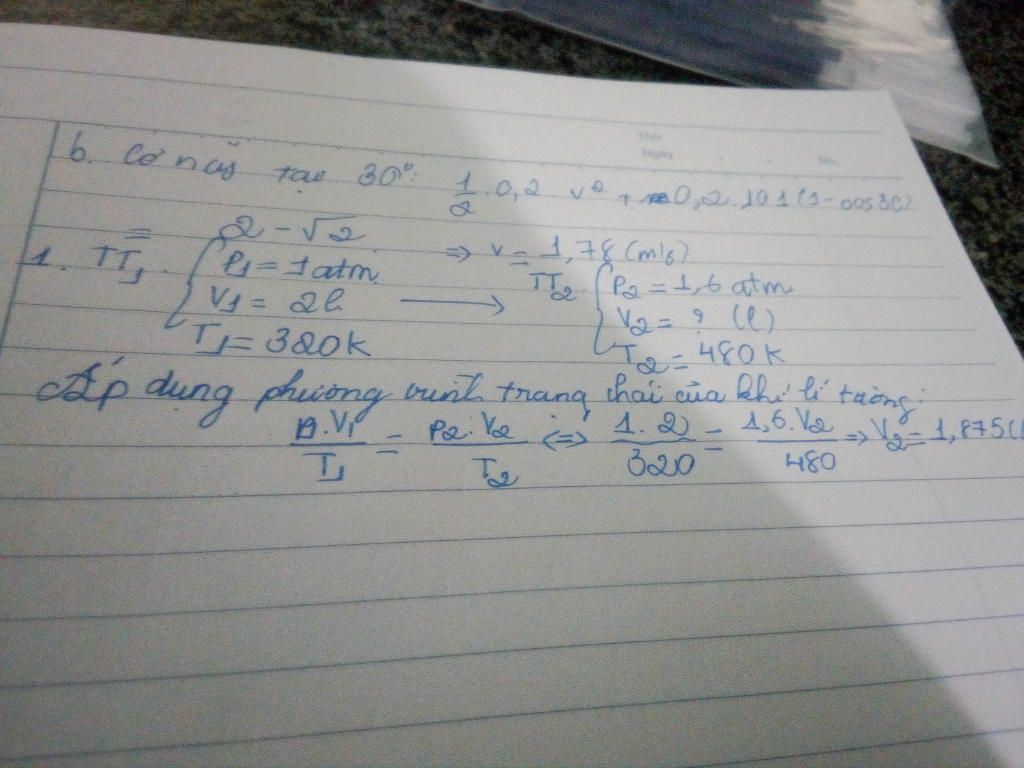 Thứ
Ngày No.
b. Cơ năg tại 30°: 1/2 . 0,2 v² + 0,2.10.1(1-cos30)
= 2 - √2 => v = 1,78 (m/s)
1. TT1. { P1 = 1 atm TT2 { P2 = 1,6 atm
V1 = 2l ⟶ V2 = ? (l)
T1 = 320K T2 = 480K
Áp dụng phương trình trạng thái của khí lí tưởng:
P1.V1/T1 = P2.V2/T2 <=> 1.2/320 = 1,6.V2/480 => V2 = 1,875(l